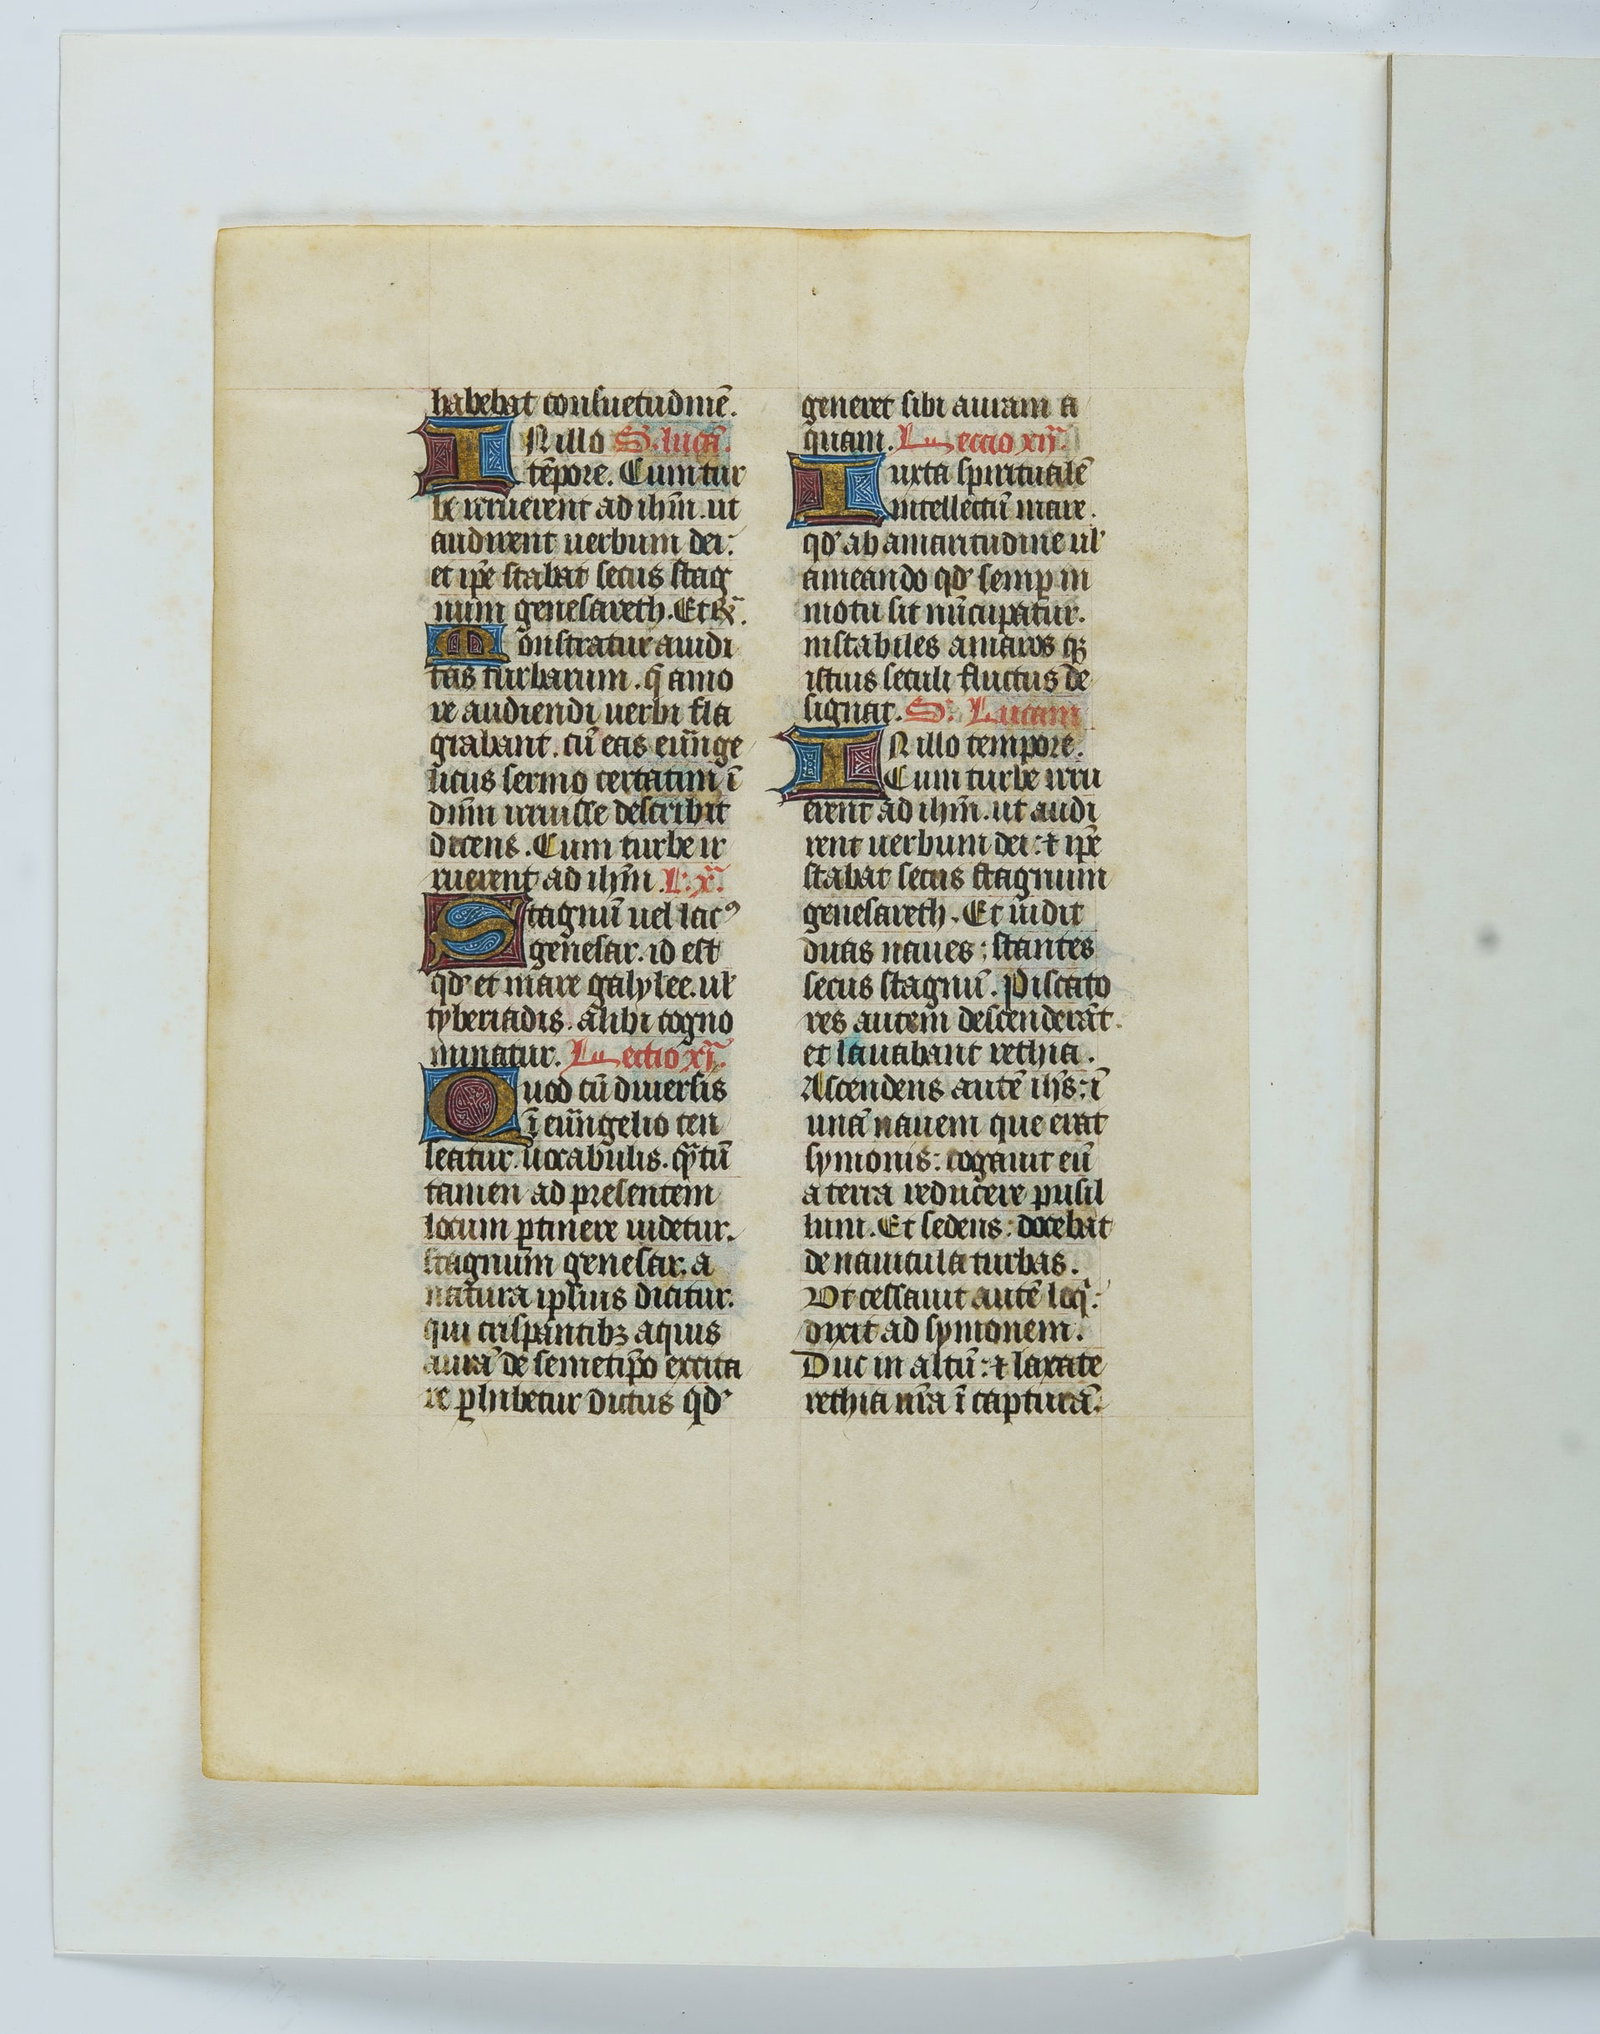 habebat consuetudinē.
IN illo S. lucā.
tēpore. Cum tur
be irruerent ad ihm̄. ut
audirent uerbum dei:
et ip̄e stabat secus stag
num genesareth. Et R̄.
Monstratur auidi
tas turbarum. q̄ amo
re audiendi uerbi fla
grabant. cū eas eūnge
licus sermo certatim ī
dn̄m irruisse describit
dicens. Cum turbe ir
ruerent ad ihm̄. L. x.
Stagnū uel lacꝰ
genesar. id est
qd̓ et mare galylee. ul̓
tyberiadis. alibi cogno
minatur. Lectio xi.
Quod cū diuersis
ī eūngelio cen
seatur uocabulis. qͣtū
tamen ad presentem
locum ꝑtinere uidetur.
stagnum genesar. a
natura ipsius dicitur.
qui crispantibꝫ aquis
aurā de semetip̄o excita
re ꝑhibetur dictus qd̓
generet sibi auram a
quam. Lectio xii.
Iuxta spiritualē
intellectū mare.
qd̓ ab amaritudine ul̓
ameando qd̓ semꝑ in
motu sit nūcupatur.
instabiles amaros qꝫ
istius seculi fluctus de
signat. S. Lucam
IN illo tempore.
Cum turbe irru
erent ad ihm̄. ut audi
rent uerbum dei: ⁊ ip̄e
stabat secus stagnum
genesareth. Et uidit
duas naues: stantes
secus stagnū. Piscato
res autem descenderāt.
et lauabant rethia.
Ascendens autē ihs̄: ī
unā nauem que erat
symonis: rogauit eū
a terra reducere pusil
lum. Et sedens: docebat
de nauicula turbas.
Vt cessauit autē loqͥ:
dixit ad symonem.
Duc in altū: ⁊ laxate
rethia ur̄a ī capturā.